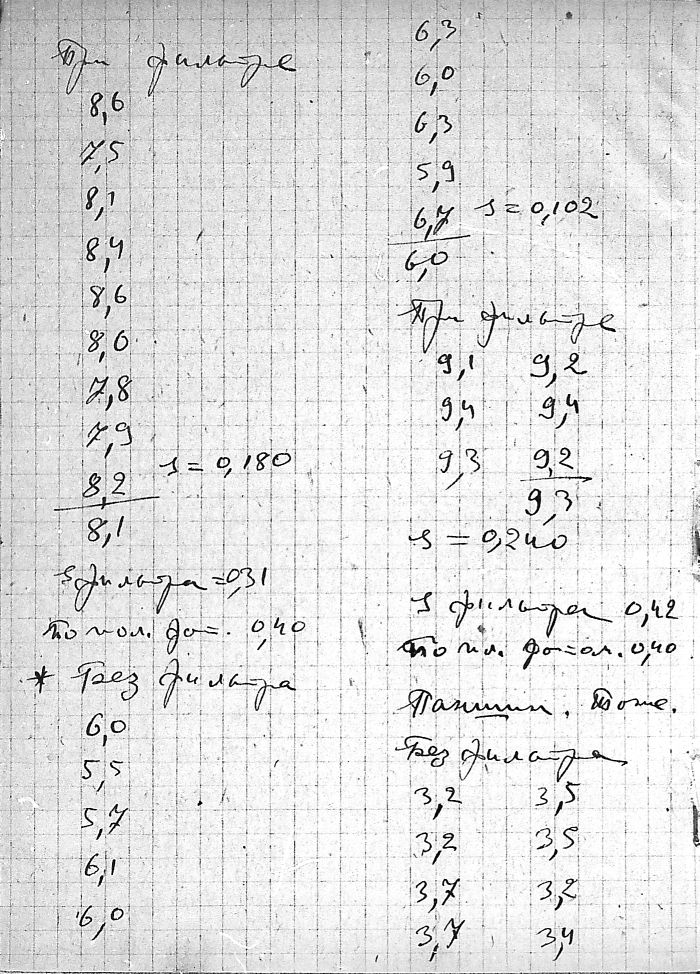 При фильтре
8,6
7,5
8,1
8,4
8,6
8,0
7,8
7,9
8,2 s = 0,180
8,1
s фильтра = 0,31
По пол. фо=. 0,40
* Без фильтра
6,0
5,5
5,7
6,1
6,0
6,3
6,0
6,3
5,9
6,7 s = 0,102
6,0
При фильтре
9,1 9,2
9,4 9,4
9,3 9,2
9,3
s = 0,240
s фильтра 0,42
По пл. фо= 0,40
Паншин. Тоже.
Без фильтра
3,2 3,5
3,2 3,5
3,7 3,2
3,7 3,4